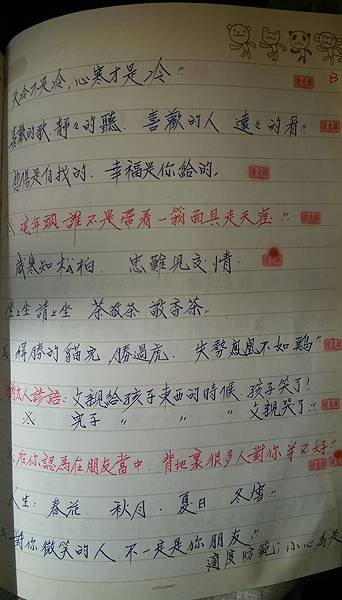 天冷不是冷，心寒才是冷"
喜歡的歌 靜々的聽. 喜歡的人 遠々的看"
悲傷是自找的. 幸福是你給的.
※這年頭 誰不是帶着一箱面具走天涯"
歲寒知松柏. 患難見交情.
坐々生請上坐 茶敬茶 敬香茶.
※ 得勝的貓兒 勝過虎. 失勢鳳凰不如鷄"
猶太人諺語：父親給孩子東西的時候 孩子笑了!
※ 兒子 〃 〃 〃 父親哭了!!
※在你認為在朋友當中. 背地裏很多人對你並不好"
人生：春花. 秋月. 夏日. 冬雪"
※對你微笑的人 不一定是你朋友"
適度防範：小心為是